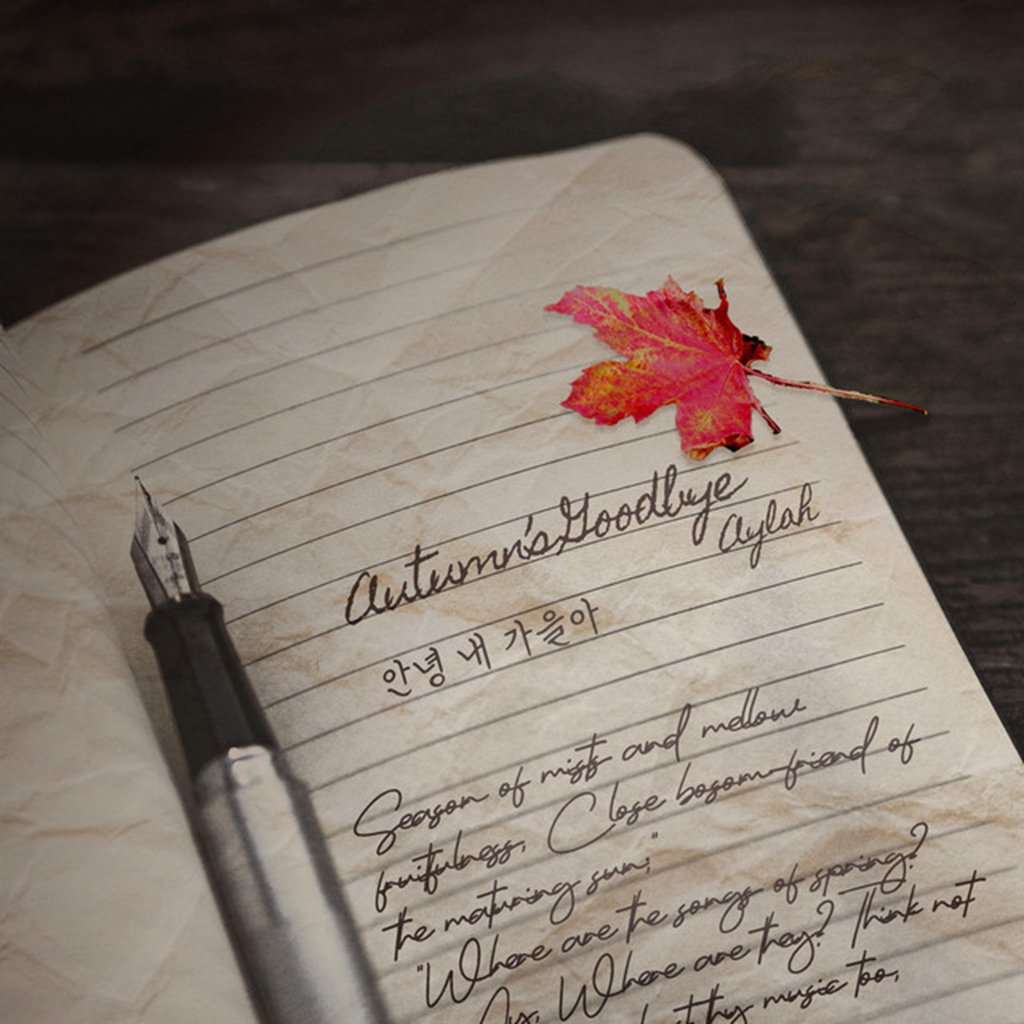 Autumn's Goodbye
Aylah
안녕 내 가을아
Season of mists and mellow
fruitfulness, Close bosom-friend of
the maturing sun;"
"Where are the songs of spring?
Ay, Where are they? Think not
thy music too,